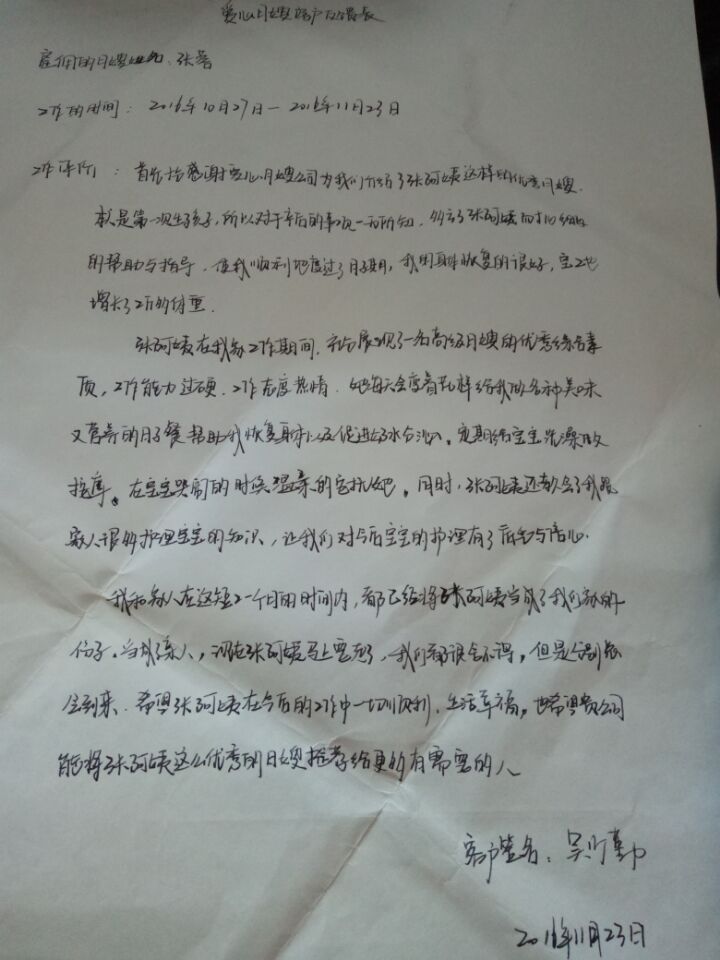 爱心月嫂客户反馈表
雇佣的月嫂姓名：张蓉
工作的时间：2016年10月27日—2016年11月23日
工作评价：首先感谢爱心月嫂公司为我们介绍了张阿姨这样的优秀月嫂.
我是第一次生孩子，所以对于产后的事项一无所知，多亏了张阿姨的细心
的帮助与指导，使我顺利地度过了月子期，我的身体恢复的很好，宝宝也
增长了2斤的体重.
张阿姨在我家工作期间，充分展现了一名高级月嫂的优秀综合素
质，工作能力过硬，工作态度热情，她每天会变着花样给我做各种美味
又营养的月子餐帮助我恢复身体以及促进奶水分泌。定期给宝宝洗澡做
按摩。在宝宝哭闹的时候温柔的安抚她。同时，张阿姨还教会了我跟
家人很多护理宝宝的知识，让我们对今后宝宝的护理有了底气与信心.
我和家人在这短短一个月的时间内，都已经将张阿姨当成了我们家的一
份子，当成了家人，现在张阿姨马上要走了，我们都很舍不得，但是分别总
会到来，希望张阿姨在今后的工作中一切顺利，生活幸福，也希望贵公司
能将张阿姨这么优秀的月嫂推荐给更多有需要的人
客户签名：吴
2016年11月23日